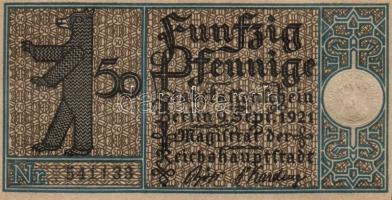 Funfzig
50 Pfennige
Berlin 9. Sept. 1921
Magistrat der
Reichshauptstadt
Nr. 541133